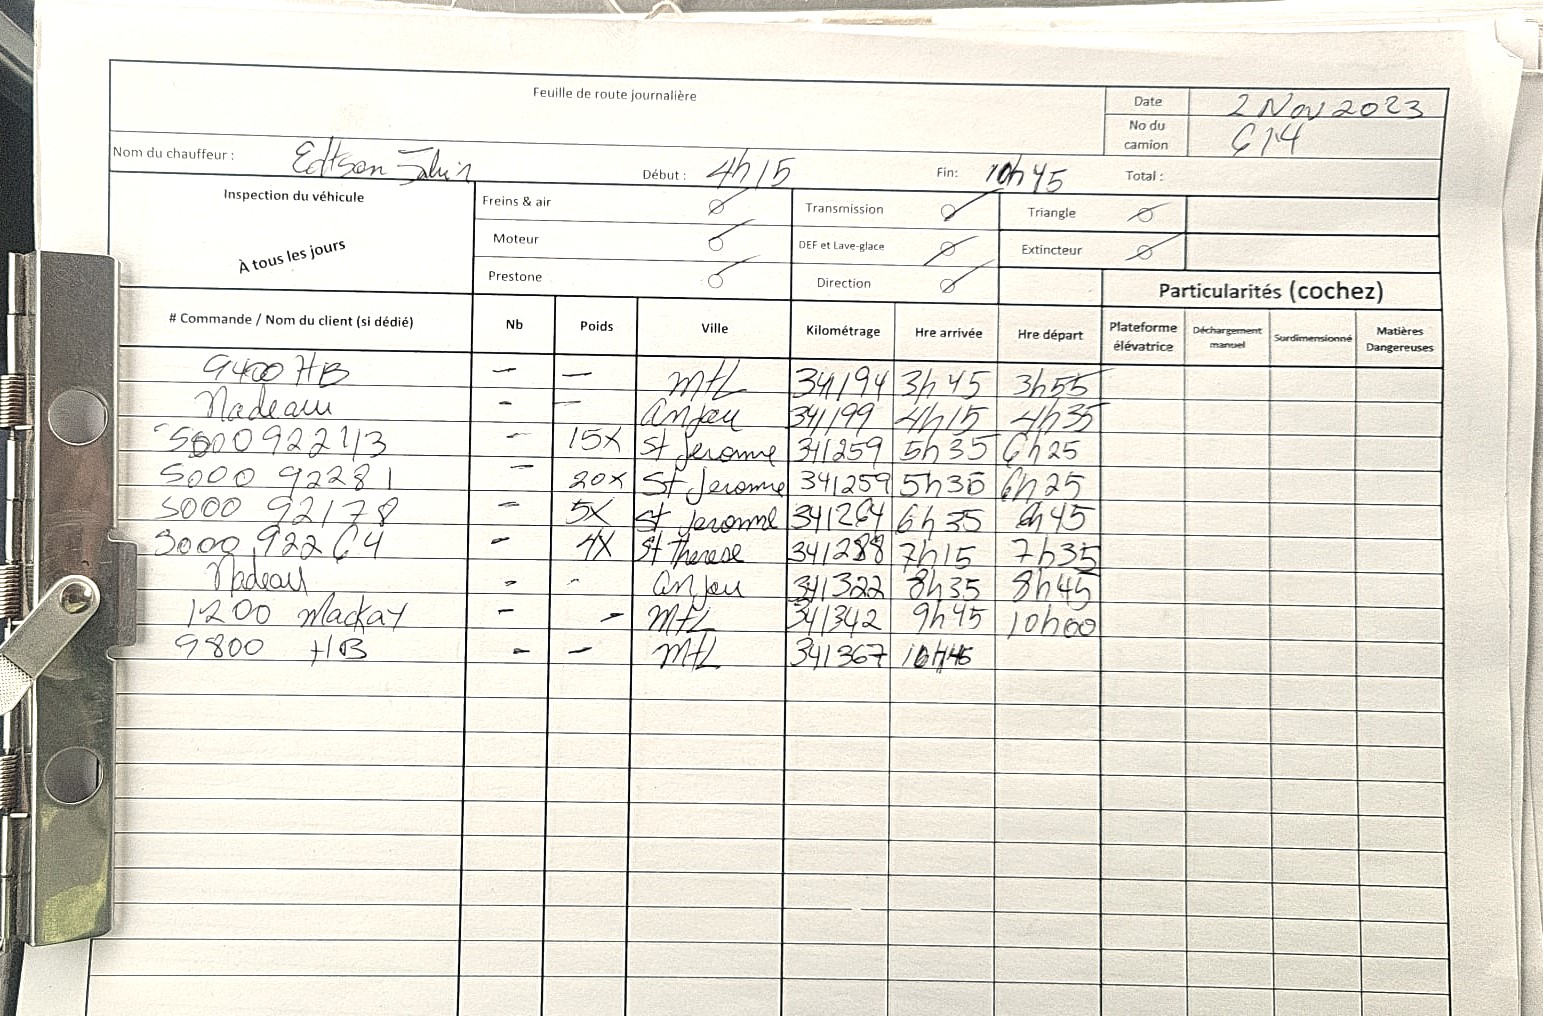 Feuille de route journalière
Date 2 Nov 2023
No du camion 614
Nom du chauffeur : Edtson Début : 4h15 Fin: 10h45 Total :
Inspection du véhicule
À tous les jours
Freins & air Transmission Triangle
Moteur DEF et Lave-glace Extincteur
Prestone Direction
Particularités (cochez)
# Commande / Nom du client (si dédié) Nb Poids Ville Kilométrage Hre arrivée Hre départ Plateforme élévatrice Déchargement manuel Surdimensionné Matières Dangereuses
9400 HB - - Mtl 341194 3h45 3h55
Nadeau - - Anjou 341199 4h15 4h35
5000922113 - 15x St Jerome 341259 5h35 6h25
5000 92281 - 20x St Jerome 341259 5h30 6h25
5000 92178 - 5x St Jerome 341264 6h35 6h45
5000 92264 - 4x St Therese 341288 7h15 7h35
Nadeau - - Anjou 341322 8h35 8h45
1200 Mackay - - Mtl 341342 9h45 10h00
9800 HB - - Mtl 341367 10h45